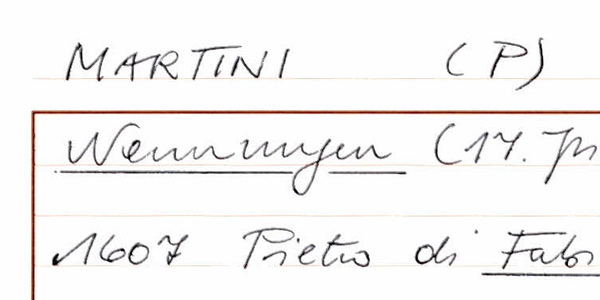 MARTINI (P)
Nennungen (17. Jh
1607 Pietro di Fabi